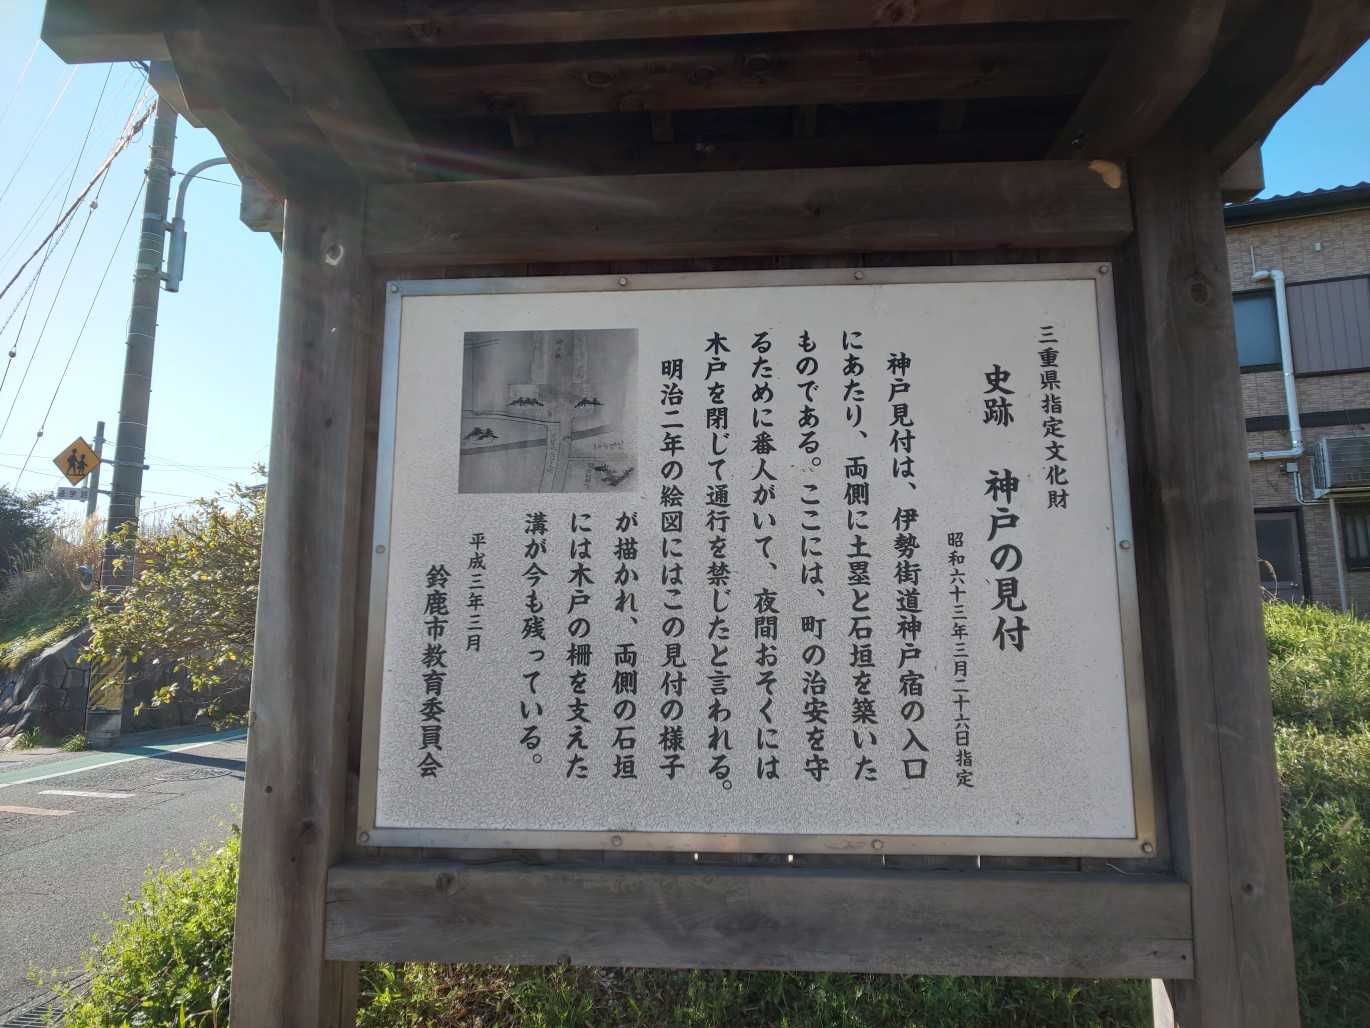 三重県指定文化財
史跡　神戸の見付
昭和六十三年三月二十六日指定
神戸見付は、伊勢街道神戸宿の入口
にあたり、両側に土塁と石垣を築いた
ものである。ここには、町の治安を守
るために番人がいて、夜間おそくには
木戸を閉じて通行を禁じたと言われる。
明治二年の絵図にはこの見付の様子
が描かれ、両側の石垣
には木戸の柵を支えた
溝が今も残っている。
平成三年三月
鈴鹿市教育委員会